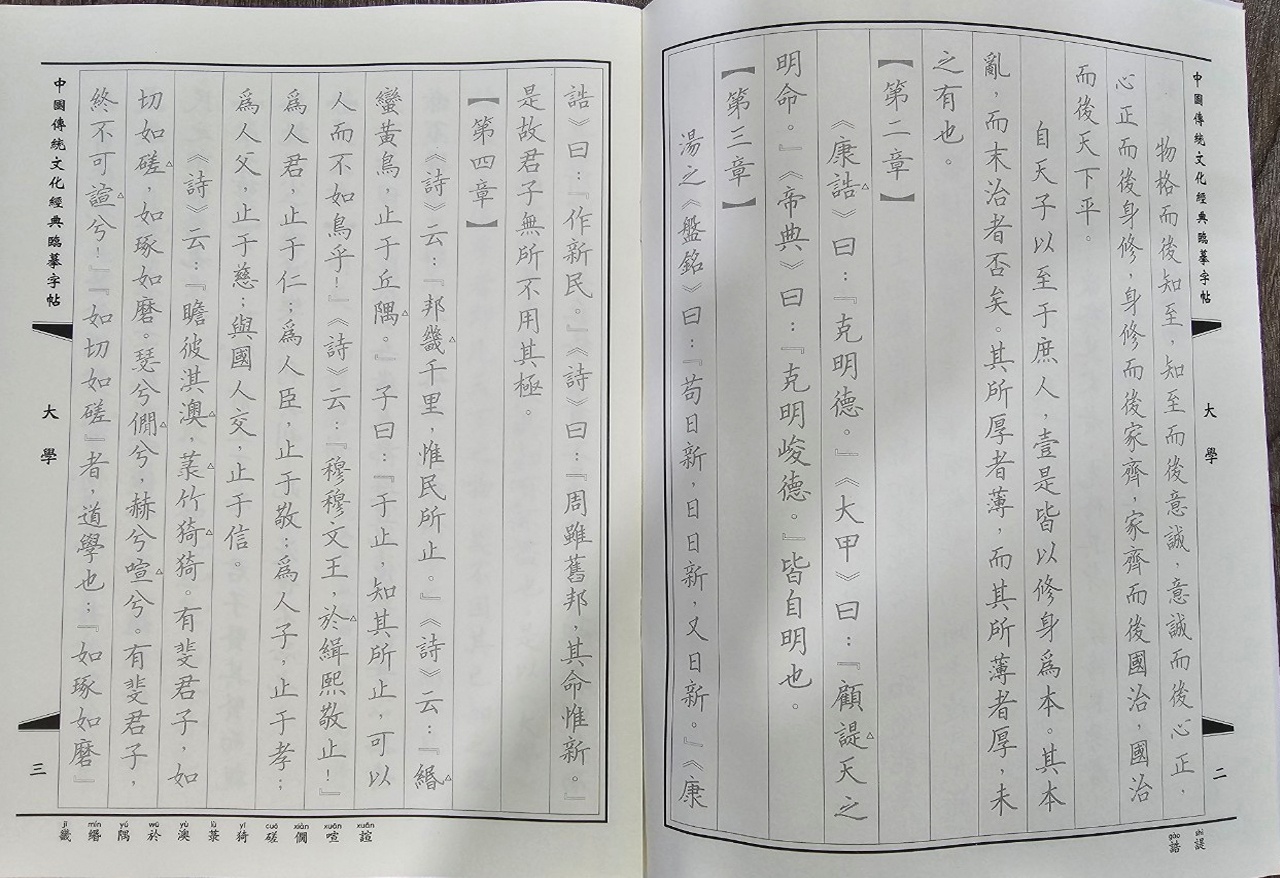 中國傳統文化經典臨摹字帖
大學
二
物格而後知至，知至而後意誠，意誠而後心正，
心正而後身修，身修而後家齊，家齊而後國治，國治
而後天下平。
自天子以至于庶人，壹是皆以修身爲本。其本
亂，而末治者否矣。其所厚者薄，而其所薄者厚，未
之有也。
【第二章】
《康誥》曰：『克明德。』《大甲》曰：『顧諟天之
明命。』《帝典》曰：『克明峻德。』皆自明也。
【第三章】
湯之《盤銘》曰：『苟日新，日日新，又日新。』《康
shì gào
諟 誥
誥》曰：『作新民。』《詩》曰：『周雖舊邦，其命惟新。』
是故君子無所不用其極。
【第四章】
《詩》云：『邦畿千里，惟民所止。』《詩》云：『緡
蠻黃鳥，止于丘隅。』子曰：『于止，知其所止，可以
人而不如鳥乎！』《詩》云：『穆穆文王，於緝熙敬止！』
爲人君，止于仁；爲人臣，止于敬；爲人子，止于孝；
爲人父，止于慈；與國人交，止于信。
《詩》云：『瞻彼淇澳，菉竹猗猗。有斐君子，如
切如磋，如琢如磨。瑟兮僩兮，赫兮喧兮。有斐君子，
終不可諠兮！』『如切如磋』者，道學也；『如琢如磨』
中國傳統文化經典臨摹字帖
大學
三
jī mín yú wū yù lù yī cuō xiàn xuān xuān
畿 緡 隅 於 澳 菉 猗 磋 僩 喧 諠